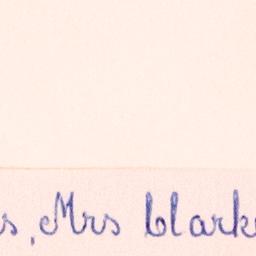 s, Mrs Clark